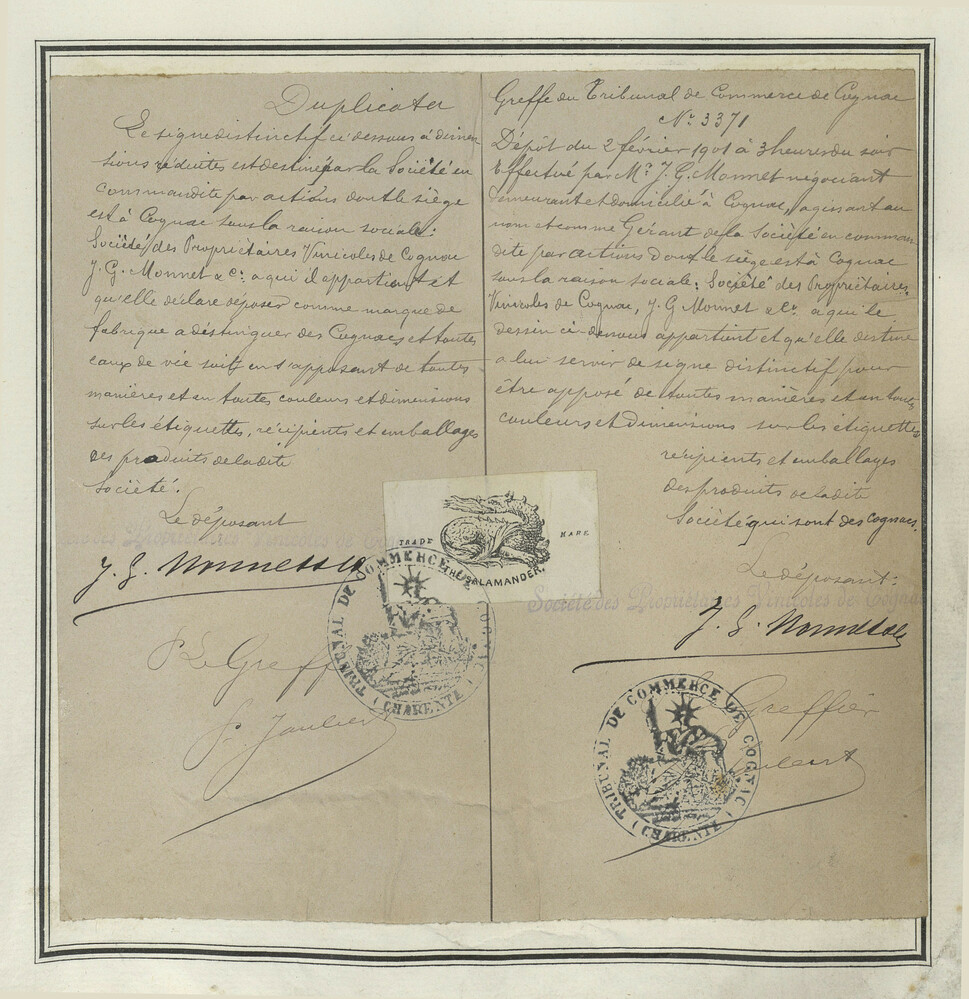 Duplicata
Le signe distinctif ci dessous à dimen-
sions réduites est destiné par la Société en
commandite par actions dont le siège
est à Cognac sous la raison sociale:
Société des Propriétaires Vinicoles de Cognac
J. G. Monnet & Cie. a qui il appartient et
qu'elle déclare déposer comme marque de
fabrique a distinguer des Cognacs et toutes
eaux de vie soit en s'apposant de toutes
manières et en toutes couleurs et dimensions
sur les étiquettes, récipients et emballages
des produits de ladite
Société.
Le déposant
Vinicoles de
J. G. Monnet & Cie
P. Le Greffier
Greffe du Tribunal de Commerce de Cognac
No. 3371
Dépôt du 2 février 1901 à 3 heures du soir
Effectué par Mr. J. G. Monnet négociant
demeurant et domicilié à Cognac, agissant au
nom et comme Gérant de la Société en comman-
dite par actions dont le siège est à Cognac
sous la raison sociale: Société des Propriétaires
Vinicoles de Cognac, J. G Monnet & Cie. a qui le
dessin ci-dessous appartient et qu'elle destine
a lui servir de signe distinctif pour
être apposé de toutes manières et en toutes
couleurs et dimensions sur les étiquettes
récipients et emballages
des produits de ladite
Société qui sont des Cognacs.
Le déposant:
Société des Propriétaires Vinicoles de Cognac
J. G. Monnet & Cie
Greffier
TRADE MARK
THE SALAMANDER.
TRIBUNAL DE COMMERCE DE COGNAC
(CHARENTE)
TRIBUNAL DE COMMERCE DE COGNAC
(CHARENTE)